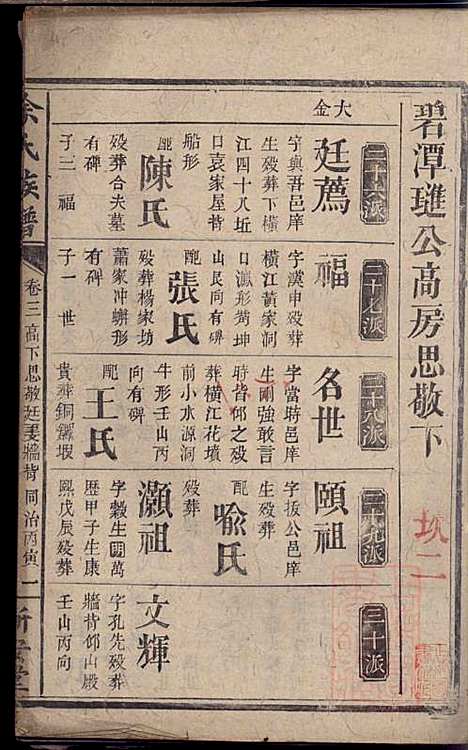 碧潭璡公高房思敬下
二十六派
大金
廷薦
字與吾邑庠
生殁葬下橫
江四十八坵
日袁家屋背
船形
配
陳氏
殁葬合夫墓
有碑
子二 福
二十七派
福
字漢申殁葬
橫江黃家洞
口瀜形巽坤
山艮向有碑
配
張氏
殁葬楊家坊
蕭家冲蠏形
有碑
子一 世
二十八派
名世
字當時邑庠
生剛強敢言
時皆仰之殁
葬橫江花墳
前小水源洞
牛形壬山丙
向有碑
配
王氏
貴葬銅鑼塅
二十九派
頤祖
字扳公邑庠
生殁葬
配
喩氏
殁葬
灝祖
字毅生國萬
歷甲子生康
熙戊辰殁葬
三十派
文輝
字孔先殁葬
牆背仰山殿
壬山丙向
余氏族譜
卷三 高下思敬廷婁牆背
同治丙寅
二
新安堂
坎二